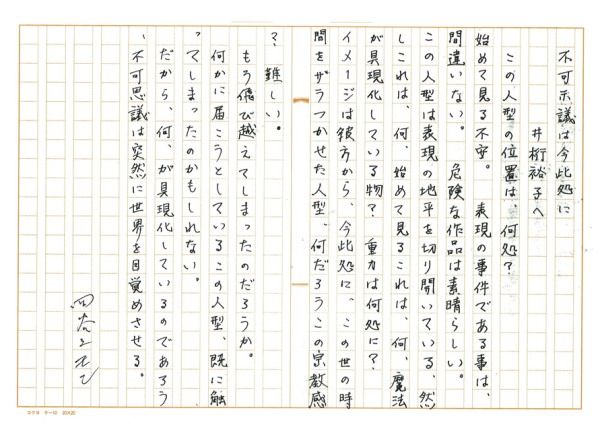 不可示議は今此処に
井桁裕子へ
この人型の位置は、何処?
始めて見る不安。表現の事件である事は、
間違いない。危険な作品は素晴らしい。
この人型は表現の地平を切り開いている、然
しこれは、何、始めて見るこれは、何、魔法
が具現化している物?重力は何処に?
イメージは彼方から、今此処に、この世の時
間をザラつかせた人型、何だろうこの宗教感
?、難しい。
もう飛び越えてしまったのだろうか。
何かに届こうとしているこの人型、既に触
ってしまったのかもしれない。
だから、何、が具現化しているのであろう
、不可思議は突然に世界を目覚めさせる。
四谷シモン
コクヨ ケー10 20×20